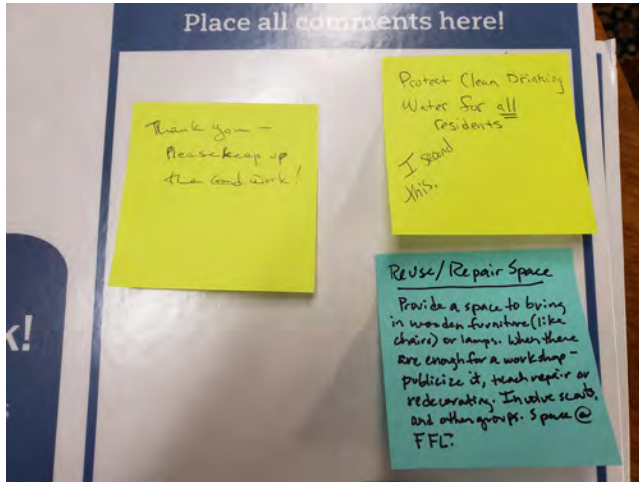 Place all comments here!
Thank you –
Please keep up
the Good Work!
Protect Clean Drinking
Water for all
residents
I second
this.
k!
s
Reuse/Repair Space
Provide a space to bring
in wooden furniture (like
chairs) or lamps. When there
are enough for a workshop –
publicize it, teach repair or
redecorating. Involve scouts,
and other groups. Space @
FFL?